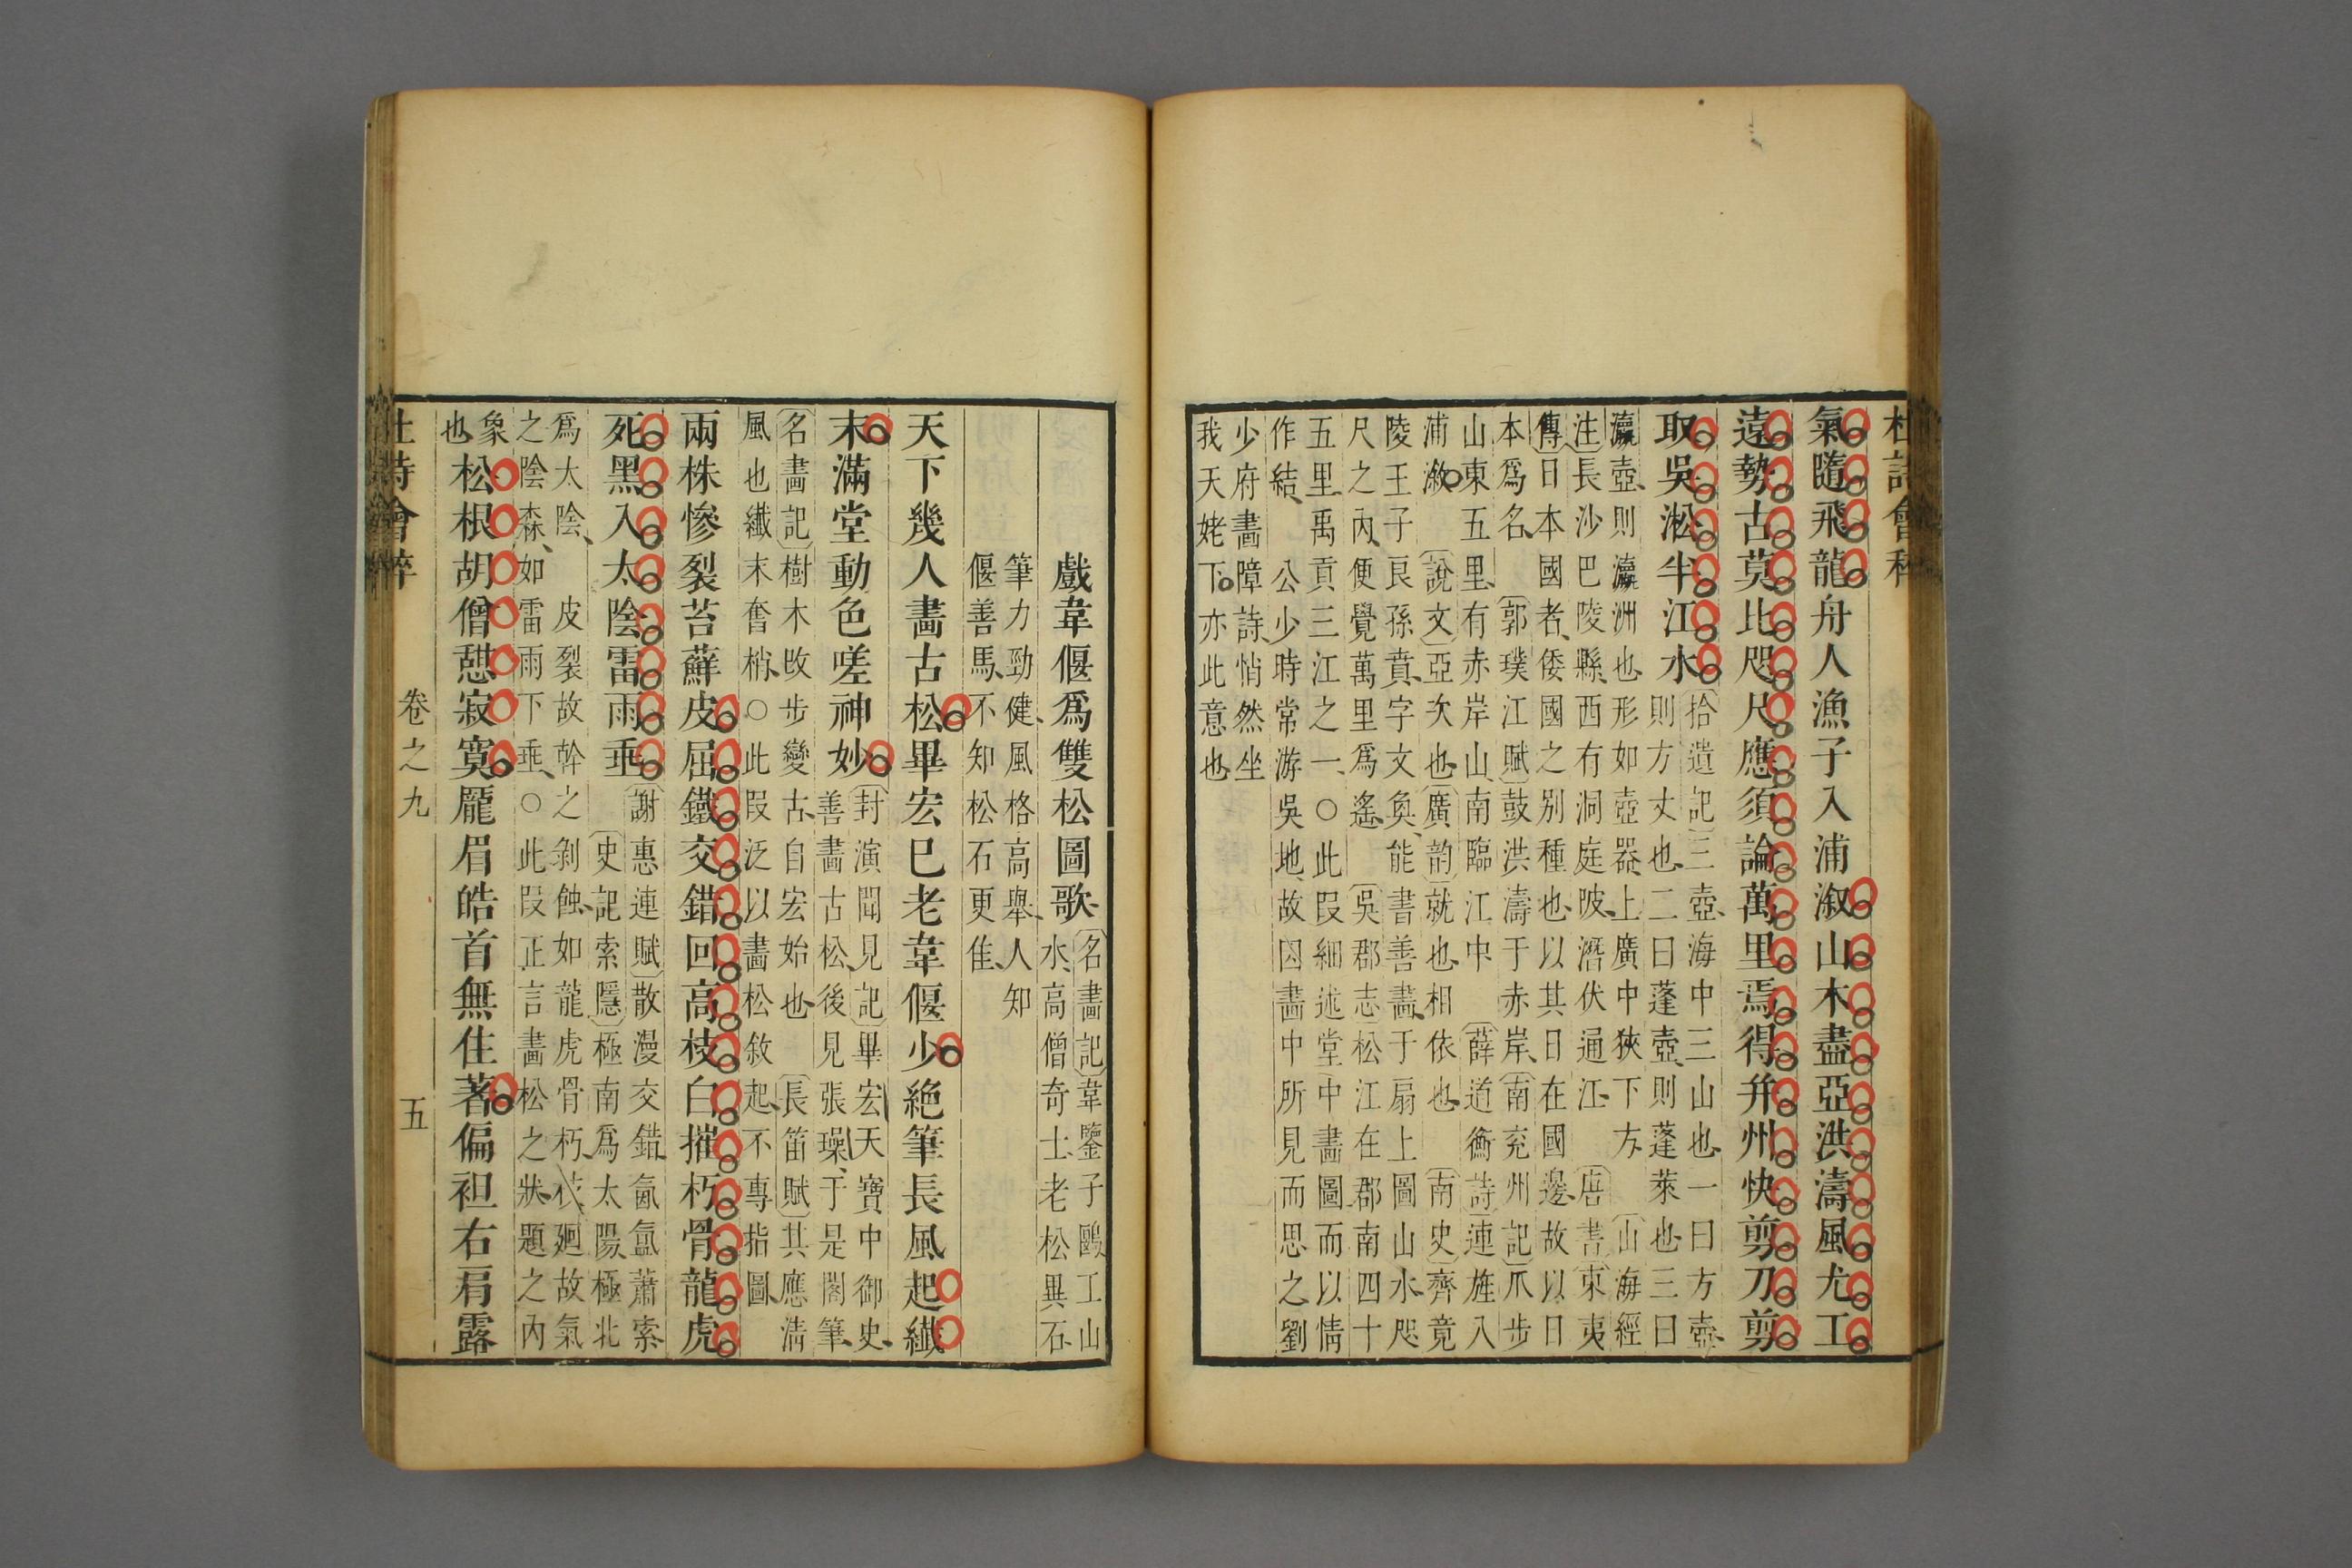 氣隨飛龍舟人漁子入浦漵山木盡亞洪濤風尤工
遠勢古莫比咫尺應須論萬里焉得并州快剪刀剪
取吳淞半江水
拾遺記三壺海中三山也一曰方壺
則方丈也二曰蓬壺則蓬萊也三曰
瀛壺則瀛洲也形如壺器上廣中狹下方 山海經
注長沙巴陵縣西有洞庭陂潛伏通江 唐書東夷
傳日本國者倭國之別種也以其日在國邊故以日
本爲名 郭璞江賦鼓洪濤于赤岸南兖州記瓜步
山東五里有赤岸山南臨江中 薛道衡詩連旌八
浦漵 說文亞次也廣韵就也相依也 南史齊竟
陵王子良孫賁字文奐能書善畫于扇上圖山水咫
尺之內便覺萬里爲遙 吳郡志松江在郡南四十
五里禹貢三江之一○此叚細述堂中畫圖而以情
作結 公少時常游吳地故因畫中所見而思之劉
少府畫障詩悄然坐
我天姥下亦此意也
戲韋偃爲雙松圖歌
名畫記韋鑒子鷗工山
水高僧奇士老松異石
筆力勁健風格高舉人知
偃善馬不知松石更佳
天下幾人畫古松畢宏巳老韋偃少絕筆長風起纎
末滿堂動色嗟神妙
封演聞見記畢宏天寶中御史
善畫古松後見張璪于是閣筆
名畫記樹木攺步變古自宏始也 長笛賦其應清
風也纎末奮梢○此叚泛以畫松敘起不專指圖
兩株慘裂苔蘚皮屈鐵交錯回高枝白摧朽骨龍虎
死黑入太陰雷雨垂
謝惠連賦散漫交錯氤氳蕭索
史記索隱極南爲太陽極北
爲太陰 皮裂故幹之剝蝕如龍虎骨朽 廻故氣
之陰森如雷雨下垂○此叚正言畫松之狀題之內
象
也
松根胡僧憇寂寞龎眉皓首無住著偏袒右肩露
卷之九
五